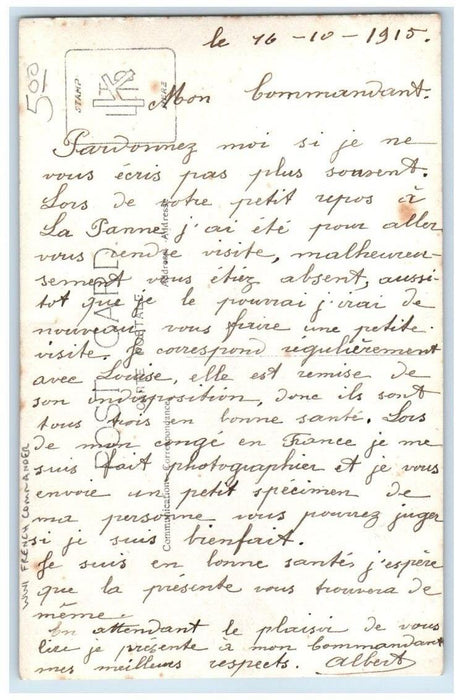 le 16-10-1915.
Mon Commandant.
Pardonnez moi si je ne
vous écris pas plus souvent.
Lors de votre petit repos à
La Panne j'ai été pour aller
vous rendre visite, malheureu-
sement vous étiez absent, aussi-
tot que je le pourrai j'irai de
nouveau vous faire une petite
visite. Je correspond régulièrement
avec Louise, elle est remise de
son indisposition, donc ils sont
tous trois en bonne santé. Lors
de mon congé en France je me
suis fait photographier et je vous
envoie un petit spécimen de
ma personne vous pourrez juger
si je suis bienfait.
Je suis en bonne santé, j'espère
que la présente vous trouvera de
même.
En attendant le plaisir de vous
lire je présente à mon Commandant
mes meilleurs respects. Albert
POST CARD
CARTE POSTALE
Communication-Correspondance
Address-Adresse
STAMP
HERE
500
WWI FRENCH COMMANDER